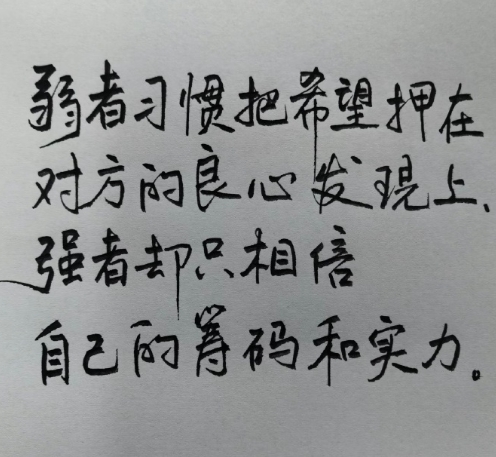 弱者习惯把希望押在
对方的良心发现上、
强者却只相信
自己的筹码和实力。